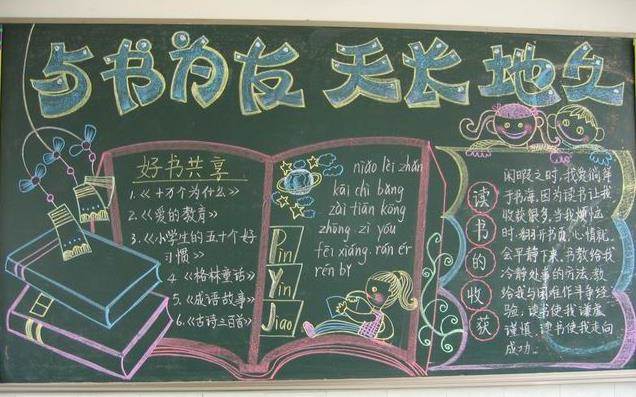 与书为友 天长地久
好书共享
1.《十万个为什么》
2.《爱的教育》
3.《小学生的五十个好
习惯》
4.《格林童话》
5.《成语故事》
6.《古诗三百首》
niǎo lèi zhǎn
kāi chì bǎng
zài tiān kōng
zhōng zì yóu
fēi xiáng. rán ér
rén by
Pin
Yin
Jiao
读书的收获
闲暇之时,我爱徜徉
于书海,因为读书让我
收获很多,当我烦恼
时,翻开书页,心情就
会平静下来,书教给我
冷静处事的方法,教
给我与困难作斗争经
验,读书使我谦虚
谨慎,读书使我走向
成功.